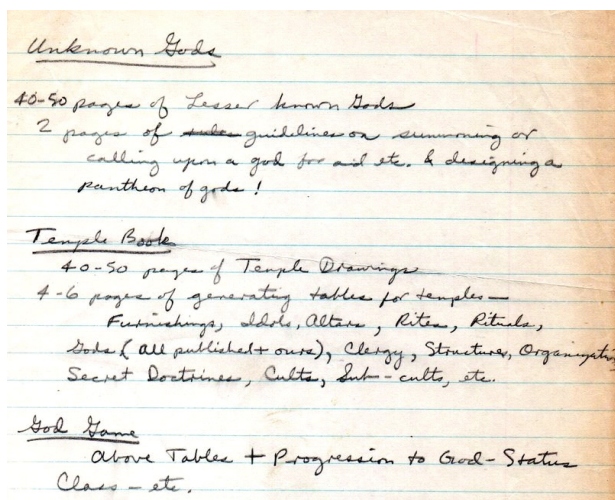 Unknown Gods
40-50 pages of Lesser known Gods
2 pages of rules guidelines on summoning or
calling upon a god for aid etc. & designing a
pantheon of gods!
Temple Book
40-50 pages of Temple Drawings
4-6 pages of generating tables for temples—
Furnishings, Idols, Altars, Rites, Rituals,
Gods (all published + ours), Clergy, Structures, Organizatio
Secret Doctrines, Cults, Sub-cults, etc.
God Game
above Tables + Progression to God-Status
Class - etc.